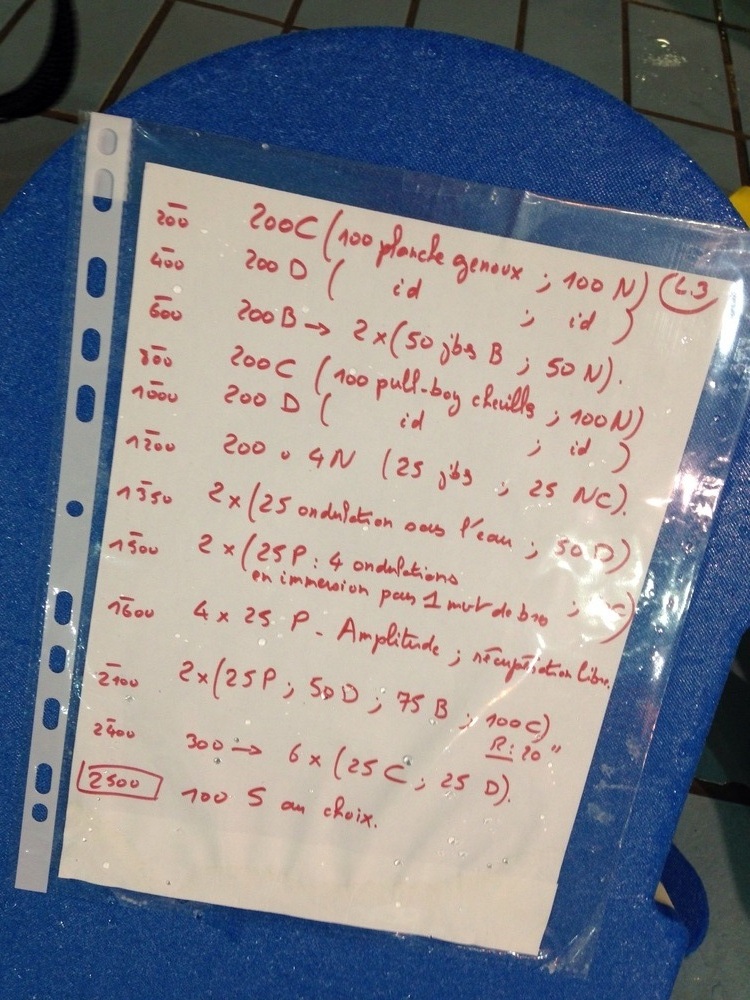 200 200C (100 planche genoux ; 100 N) L.3
400 200 D ( id ; id )
600 200 B → 2 x (50 jbs B ; 50 N).
800 200C (100 pull-boy chevilles ; 100N)
1000 200 D ( id ; id )
1200 200 4N (25 jbs ; 25 NC).
1350 2 x (25 ondulation sous l'eau ; 50 D)
1500 2 x (25P : 4 ondulations
en immersion pour 1 mvt de bras ; )
1600 4 x 25 P - Amplitude ; récupération libre.
2100 2x (25P ; 50D ; 75 B ; 100C)
R : 20"
2400 300 → 6 x (25 C ; 25 D).
2500 100 S au choix.